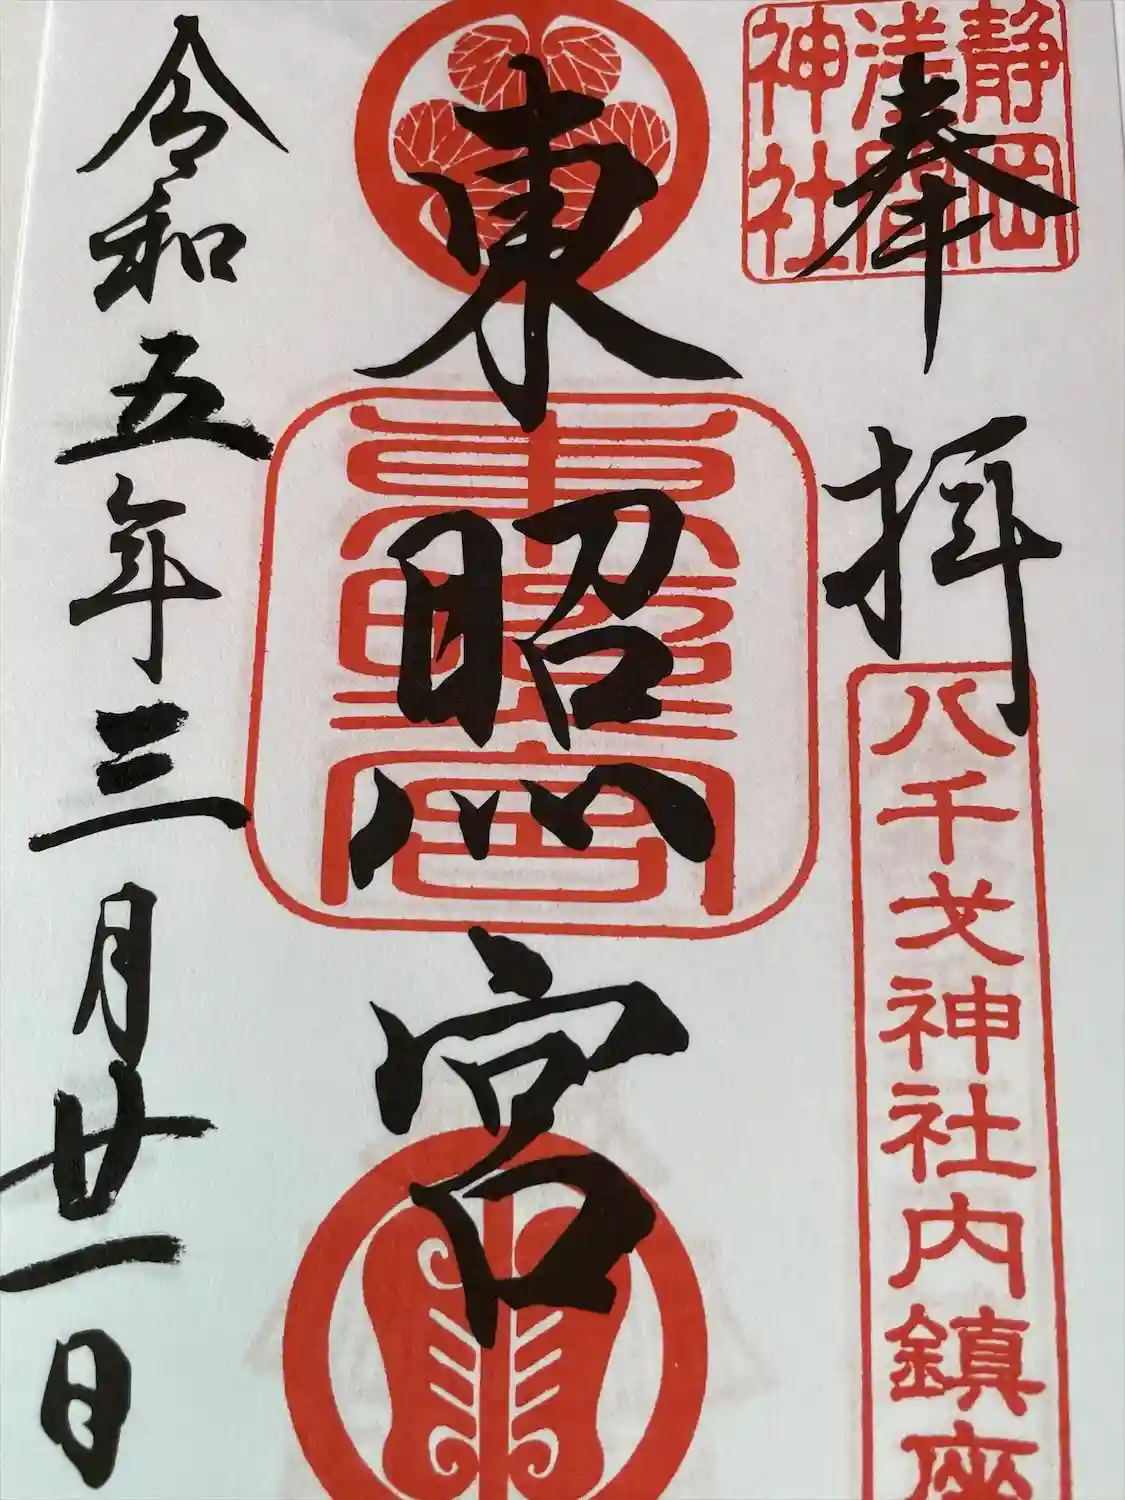 奉拝
静岡
浅間
神社
八千戈神社内鎮座
東照宮
東照宮
令和五年三月廿一日